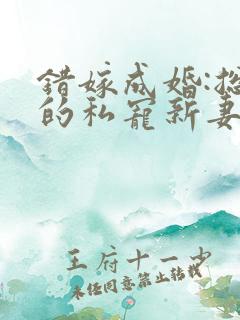 错嫁成婚:总
的私宠新妻
王府十一少
未经同意禁止转载